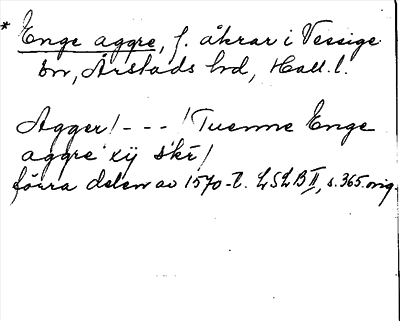 * Enge aggre, f. åkrar i Vessige
sn, Årstads hd, Hall. l.
Agger / - - - / Tuenne Enge
aggre xij skr /
förra delen av 1570-t. LSLB II, s. 365. orig.